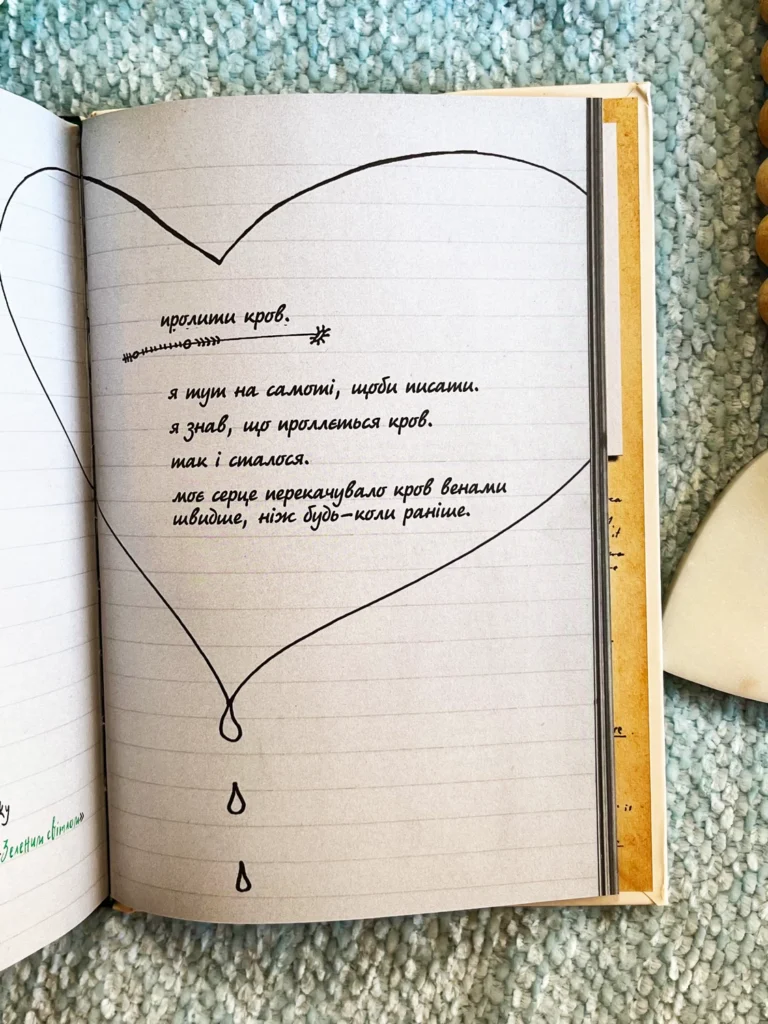 пролити кров.
я тут на самоті, щоби писати.
я знав, що проллється кров.
так і сталося.
моє серце перекачувало кров венами
швидше, ніж будь-коли раніше.
Зеленим світлом»